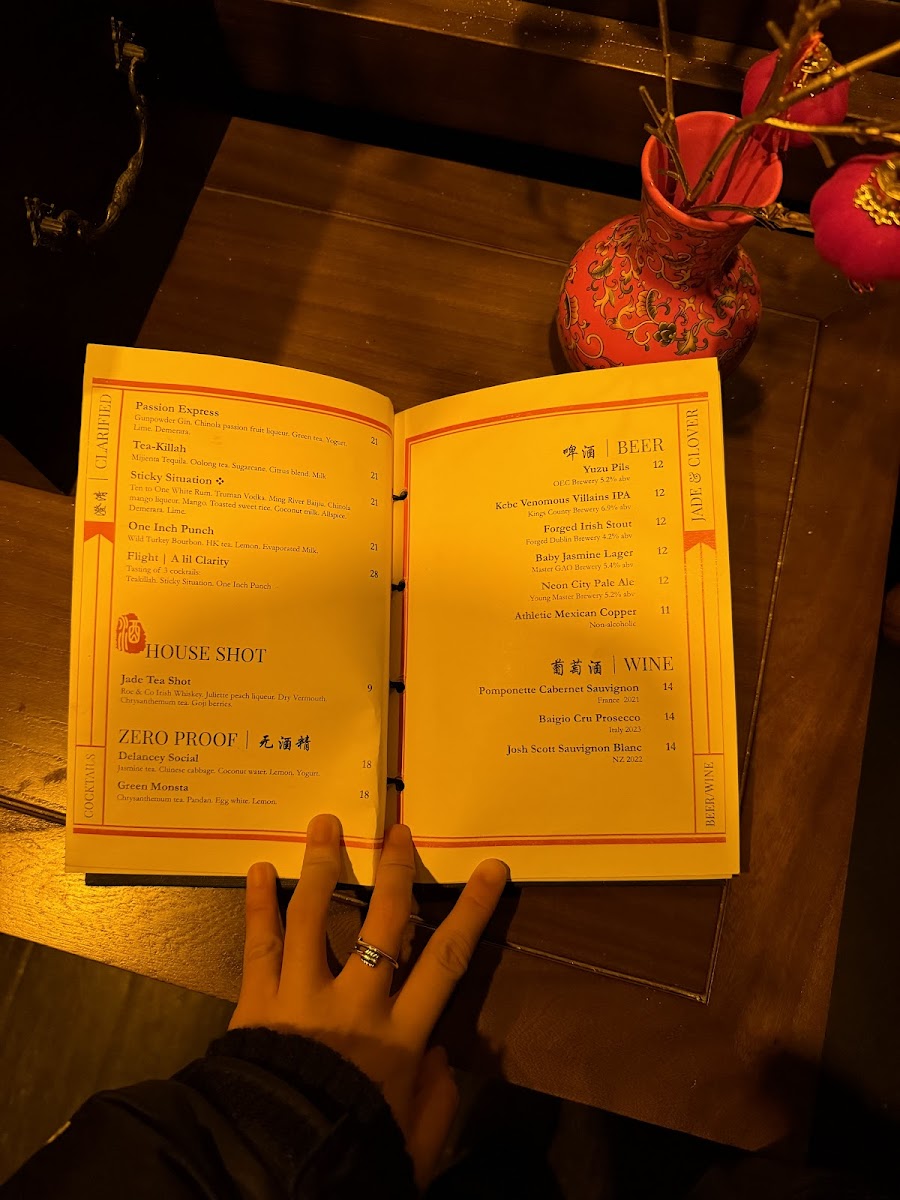 澄清 | CLARIFIED
Passion Express
Gunpowder Gin. Chinola passion fruit liqueur. Green tea. Yogurt.
Lime. Demerara. 21
Tea-Killah
Mijenta Tequila. Oolong tea. Sugarcane. Citrus blend. Milk 21
Sticky Situation ❖
Ten to One White Rum. Truman Vodka. Ming River Baijiu. Chinola 21
mango liqueur. Mango. Toasted sweet rice. Coconut milk. Allspice.
Demerara. Lime.
One Inch Punch
Wild Turkey Bourbon. HK tea. Lemon. Evaporated Milk. 21
Flight | A lil Clarity
Tasting of 3 cocktails: 28
Teakillah. Sticky Situation. One Inch Punch
酒
HOUSE SHOT
Jade Tea Shot
Roe & Co Irish Whiskey. Juliette peach liqueur. Dry Vermouth. 9
Chrysanthemum tea. Goji berries.
ZERO PROOF | 无酒精
Delancey Social
Jasmine tea. Chinese cabbage. Coconut water. Lemon. Yogurt. 18
Green Monsta
Chrysanthemum tea. Pandan. Egg white. Lemon. 18
COCKTAILS
啤酒 | BEER
Yuzu Pils 12
OEC Brewery 5.2% abv
Kcbc Venomous Villains IPA 12
Kings County Brewery 6.9% abv
Forged Irish Stout 12
Forged Dublin Brewery 4.2% abv
Baby Jasmine Lager 12
Master GAO Brewery 5.4% abv
Neon City Pale Ale 12
Young Master Brewery 5.2% abv
Athletic Mexican Copper 11
Non-alcoholic
葡萄酒 | WINE
Pomponette Cabernet Sauvignon 14
France 2021
Baigio Cru Prosecco 14
Italy 2023
Josh Scott Sauvignon Blanc 14
NZ 2022
JADE & CLOVER
BEER/WINE